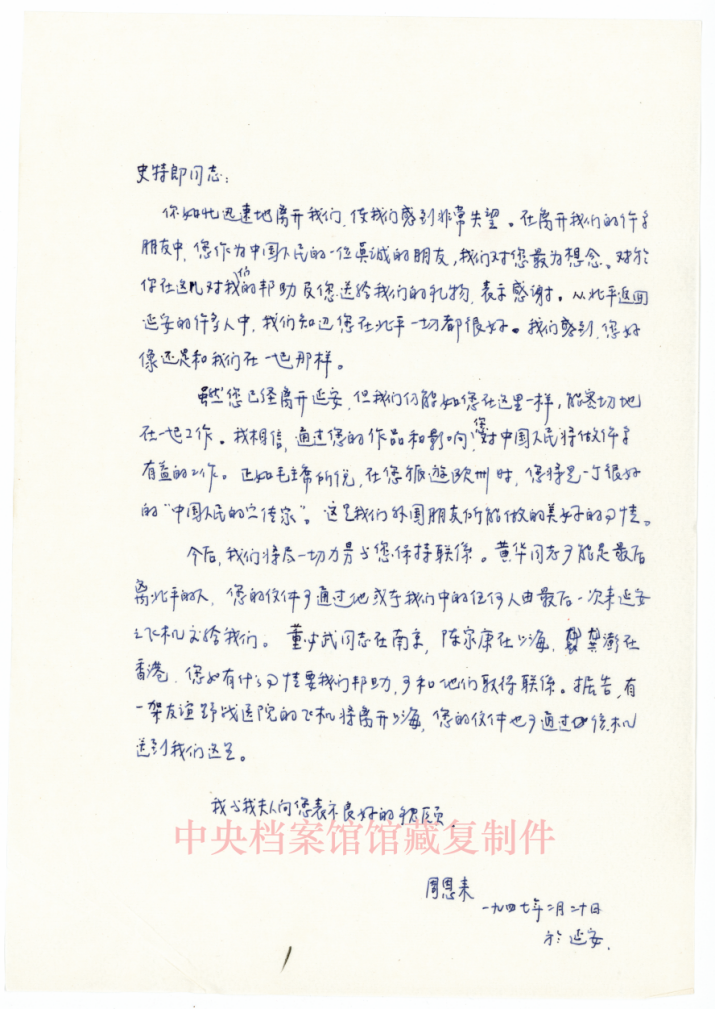 史特郎同志：
你如此迅速地离开我们，使我们感到非常失望。在离开我们的许多
朋友中，您作为中国人民的一位真诚的朋友，我们对您最为想念。对於
你在这儿对我们的帮助及您送给我们的礼物，表示感谢。从北平返回
延安的许多人中，我们知道您在北平一切都很好。我们感到，您好
像还是和我们在一起那样。
虽然您已经离开延安，但我们仍能如您在这里一样，能密切地
在一起工作。我相信，通过您的作品和影响，您对中国人民将做许多
有益的工作。正如毛主席所说，在您旅遊欧州时，您将是一个很好
的“中国人民的宣传家”。这是我们外国朋友所能做的美好的事情。
今后，我们将尽一切力量与您保持联係。黄华同志可能是最后
离北平的人，您的信件可通过他或在我们中的任何人由最后一次来延安
之飞机交给我们。董必武同志在南京，陈家康在上海，龚澎在
香港，您如有什么事情要我们帮助，可和他们取得联係。据告，有
一架友谊野战医院的飞机将离开上海，您的信件也可通过该机
送到我们这里。
我与我夫人向您表示良好的祝愿。
中央档案馆馆藏复制件
周恩来
一九四七年二月二十日
於延安.